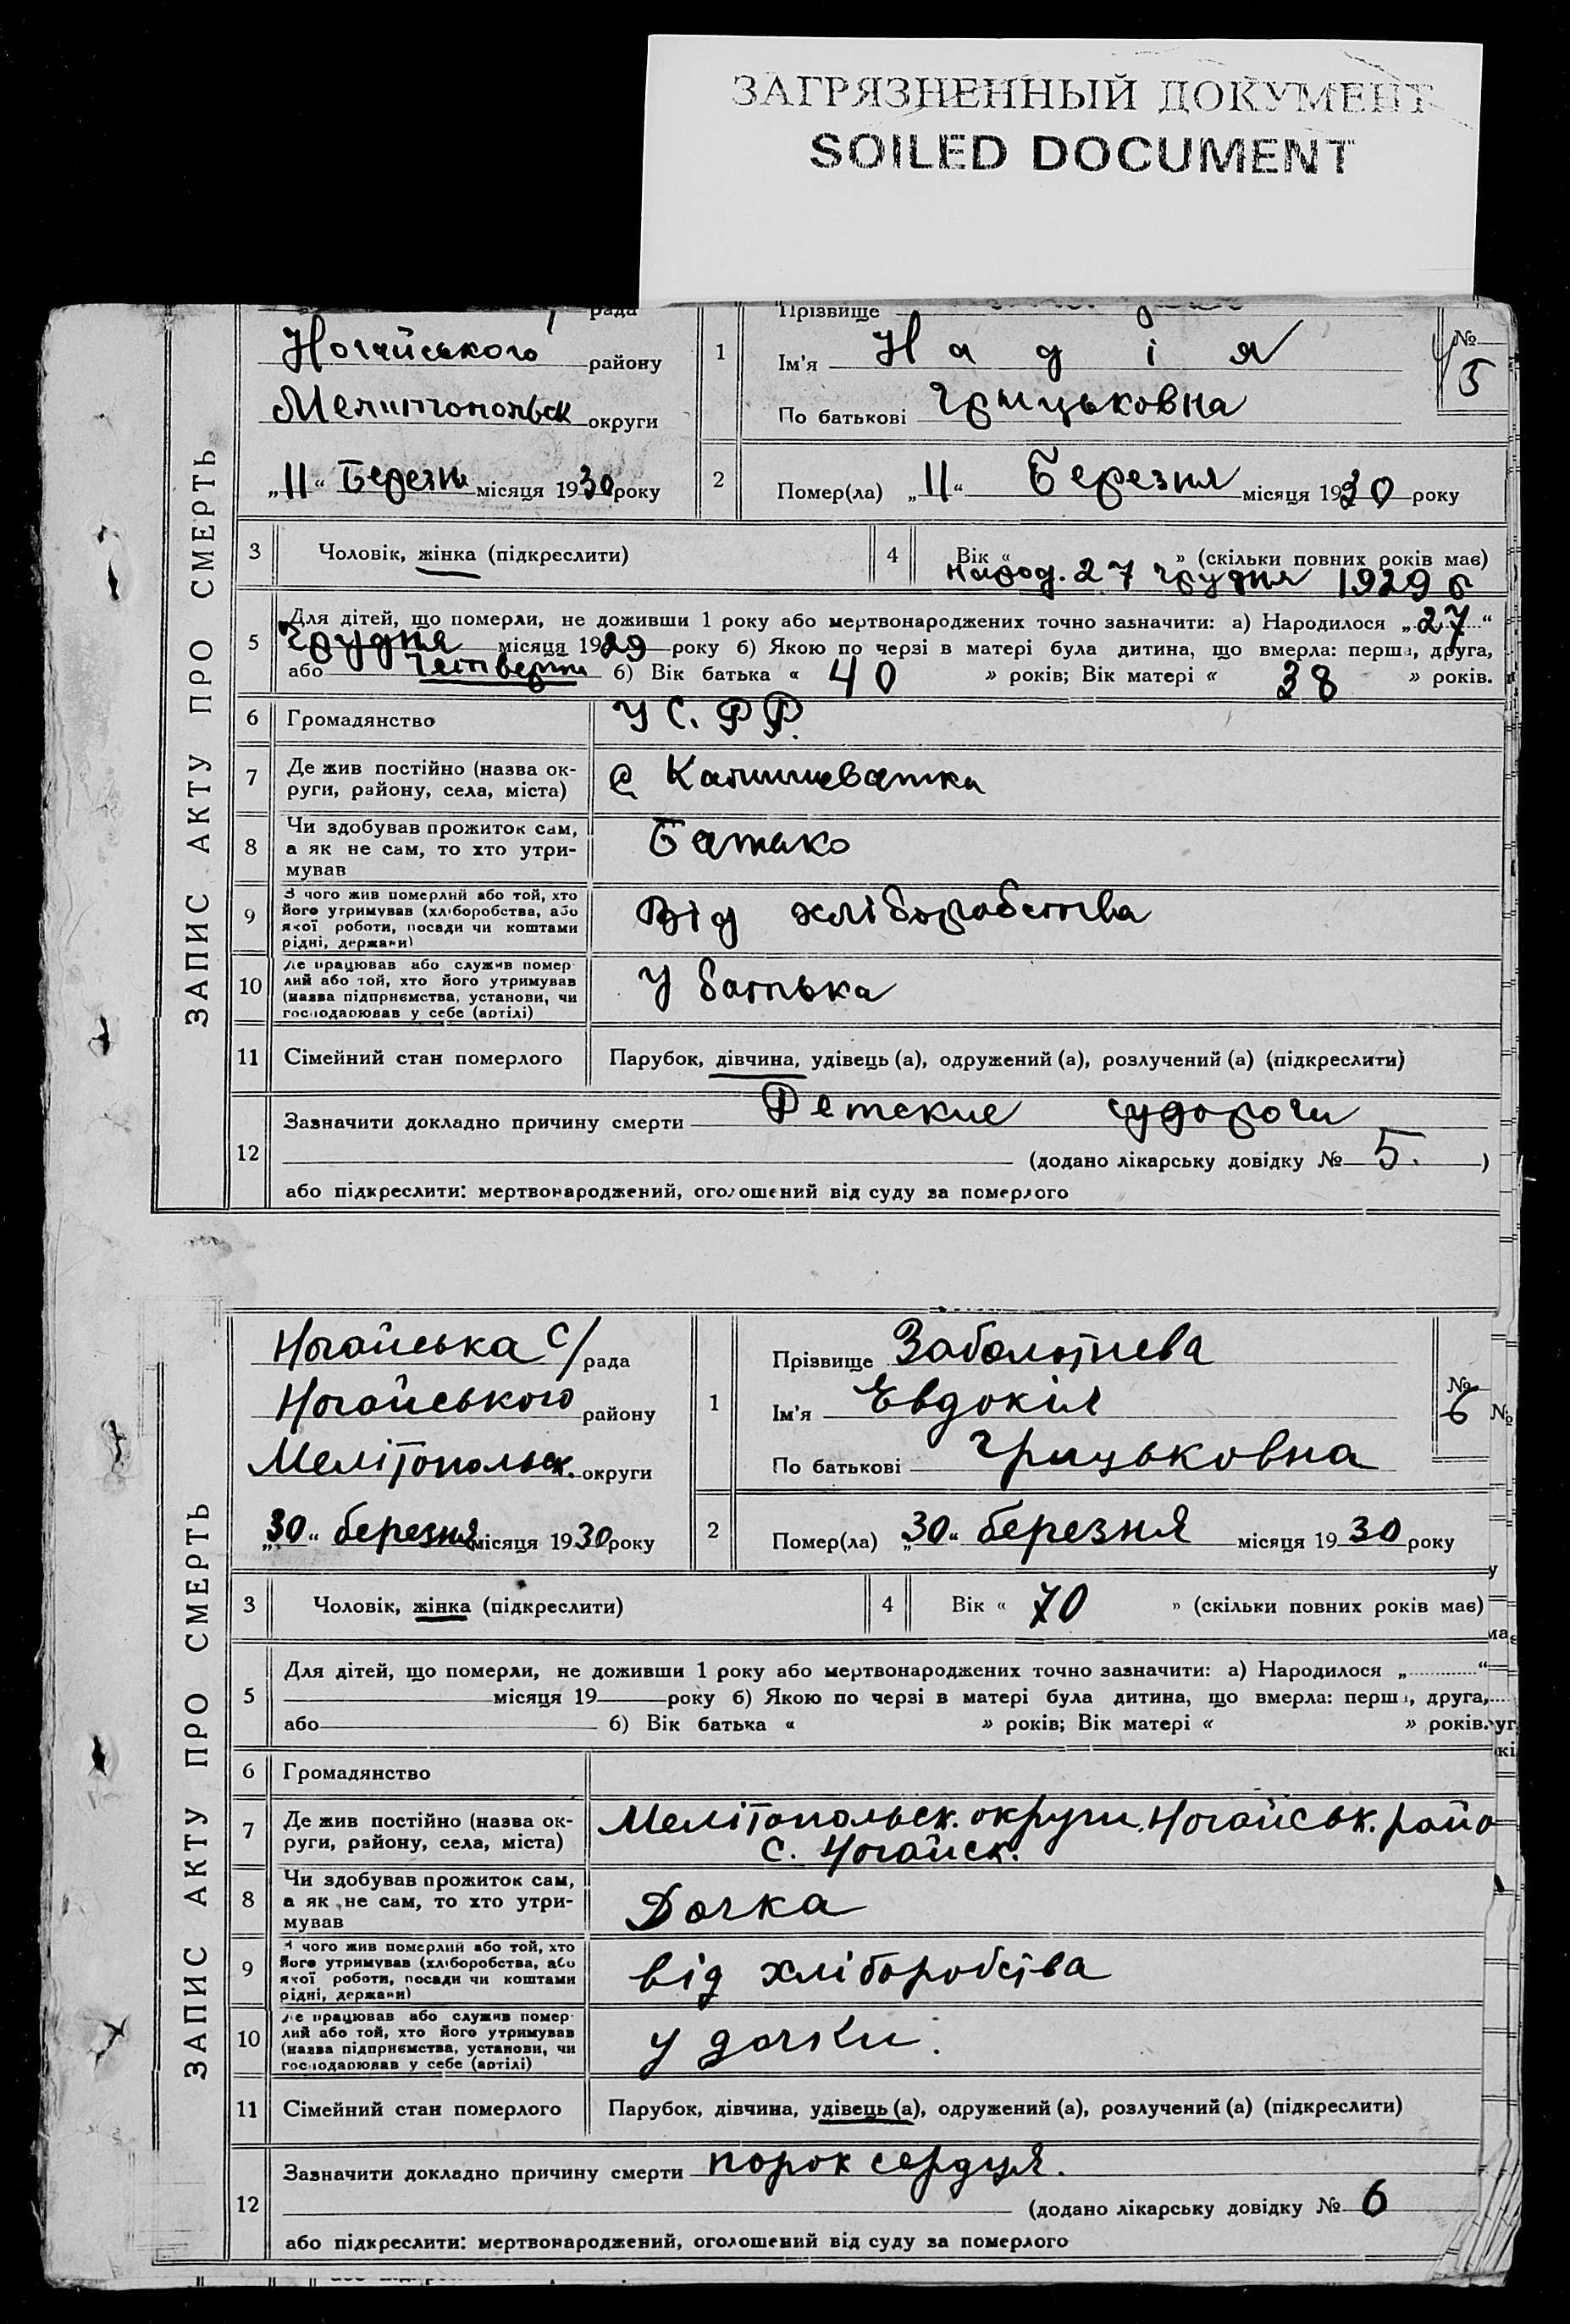 ЗАГРЯЗНЕННЫЙ ДОКУМЕНТ
SOILED DOCUMENT
ЗАПИС АКТУ ПРО СМЕРТЬ
рада
Ногайського району
Мелитопольск округи
„11“ Березня місяця 1930 року
1 Прізвище
Ім'я Надія
По батькові Грицьковна
№ 5
2 Помер(ла) „11“ Березня місяця 1930 року
3 Чоловік, жінка (підкреслити)
4 Вік « » (скільки повних років має)
народ. 27 грудня 1929 р
5 Для дітей, що померли, не доживши 1 року або мертвонароджених точно зазначити: а) Народилося „27“
Грудня місяця 1929 року б) Якою по черзі в матері була дитина, що вмерла: перша, друга,
або четверта б) Вік батька « 40 » років; Вік матері « 38 » років.
6 Громадянство У С. Р Р.
7 Де жив постійно (назва ок-
руги, району, села, міста)
С
8 Чи здобував прожиток сам,
а як не сам, то хто утри-
мував
Батько
9 З чого жив померлий або той, хто
його утримував (хліборобства, або
якої роботи, посади чи коштами
рідні, держави)
Від хліборобства
10 Де працював або служив помер-
лий або той, хто його утримував
(назва підприємства, установи, чи
господарював у себе (артілі)
У батька
11 Сімейний стан померлого Парубок, дівчина, удівець (а), одружений (а), розлучений (а) (підкреслити)
12 Зазначити докладно причину смерти Детские судороги
(додано лікарську довідку № 5. )
або підкреслити: мертвонароджений, оголошений від суду за померлого
ЗАПИС АКТУ ПРО СМЕРТЬ
Ногайська С/ рада
Ногайського району
Мелітопольск. округи
„30“ березня місяця 1930 року
1 Прізвище Заболотнева
Ім'я Евдокія
По батькові Грицьковна
№ 6
№
2 Помер(ла) „30“ березня місяця 1930 року
3 Чоловік, жінка (підкреслити)
4 Вік « 70 » (скільки повних років має)
5 Для дітей, що померли, не доживши 1 року або мертвонароджених точно зазначити: а) Народилося „ “
місяця 19 року б) Якою по черзі в матері була дитина, що вмерла: перша, друга,
або б) Вік батька « » років; Вік матері « » років.
6 Громадянство
7 Де жив постійно (назва ок-
руги, району, села, міста)
Мелітопольск. округи, Ногайськ. райо
С. Ногайск.
8 Чи здобував прожиток сам,
а як не сам, то хто утри-
мував
Дочка
9 З чого жив померлий або той, хто
його утримував (хліборобства, або
якої роботи, посади чи коштами
рідні, держави)
від хліборобства
10 Де працював або служив помер-
лий або той, хто його утримував
(назва підприємства, установи, чи
господарював у себе (артілі)
у дочки.
11 Сімейний стан померлого Парубок, дівчина, удівець (а), одружений (а), розлучений (а) (підкреслити)
12 Зазначити докладно причину смерти порок сердця.
(додано лікарську довідку № 6
або підкреслити: мертвонароджений, оголошений від суду за померлого